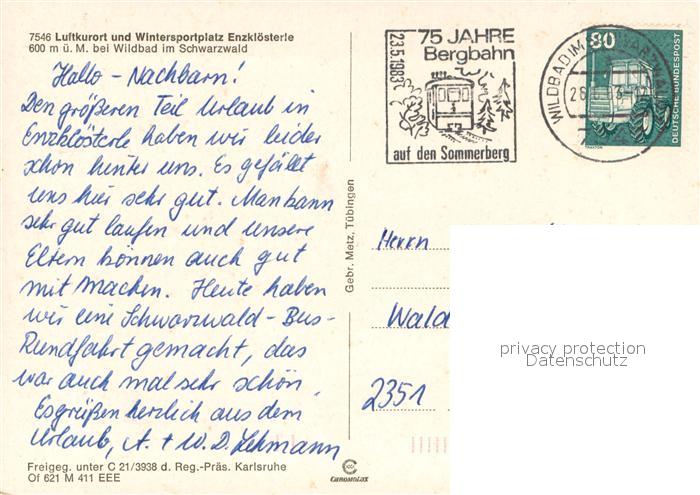 7546 Luftkurort und Wintersportplatz Enzklösterle
600 m ü. M. bei Wildbad im Schwarzwald
Hallo - Nachbarn!
Den größeren Teil Urlaub in
Enzklösterle haben wir leider
schon hinter uns. Es gefällt
uns hier sehr gut. Man kann
sehr gut laufen und unsere
Eltern können auch gut
mit machen. Heute haben
wir eine Schwarzwald - Bus-
Rundfahrt gemacht, das
war auch mal sehr schön.
Es grüßen herzlich aus dem
Urlaub, A. + W. D. Lehmann
Freigeg. unter C 21/3938 d. Reg.-Präs. Karlsruhe
Of 621 M 411 EEE
Gebr. Metz, Tübingen
CHROMOLUX
23.5.1983
75 JAHRE
Bergbahn
auf den Sommerberg
WILDBAD IM
80
DEUTSCHE BUNDESPOST
TRAKTOR
Herrn
Wald
2351
privacy protection
Datenschutz